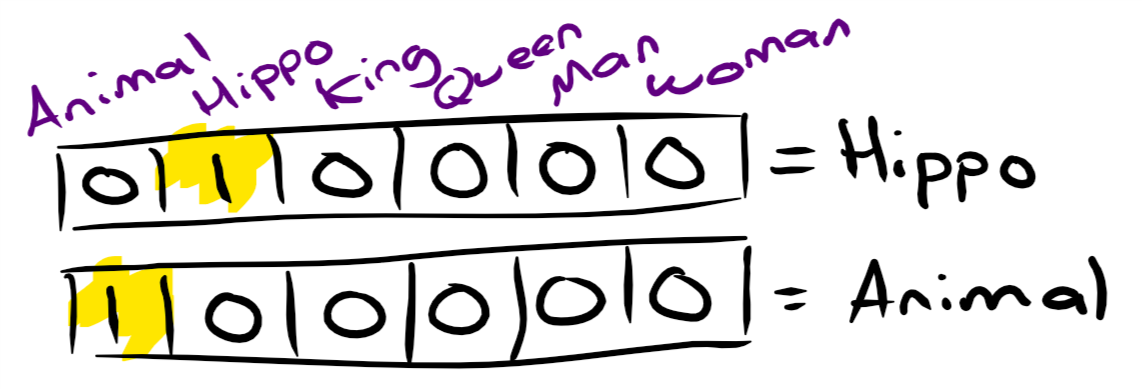 Animal Hippo King Queen Man Woman
0 1 0 0 0 0 = Hippo
1 0 0 0 0 0 = Animal